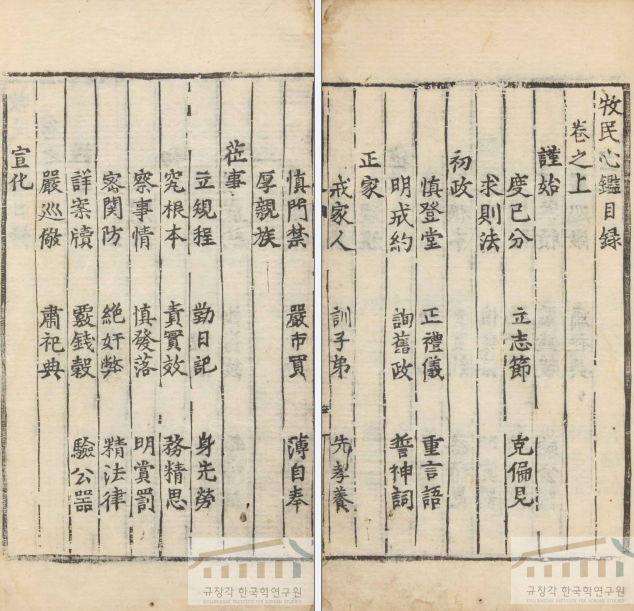 牧民心鑑目録
卷之上
謹始
度己分 立志節 克偏見
求則法
初政
慎登堂 正禮儀 重言語
明戒約 詢舊政 誓神詞
正家
戒家人 訓子弟 先孝養
慎門禁 嚴市買 薄自奉
厚親族
莅事
立規程 勤日記 身先勞
究根本 責實效 務精思
察事情 慎發落 明賞罰
密関防 絶奸弊 精法律
詳案牘 覈錢穀 驗公器
嚴巡儆 肅祀典
宣化
규장각 한국학연구원
규장각 한국학연구원